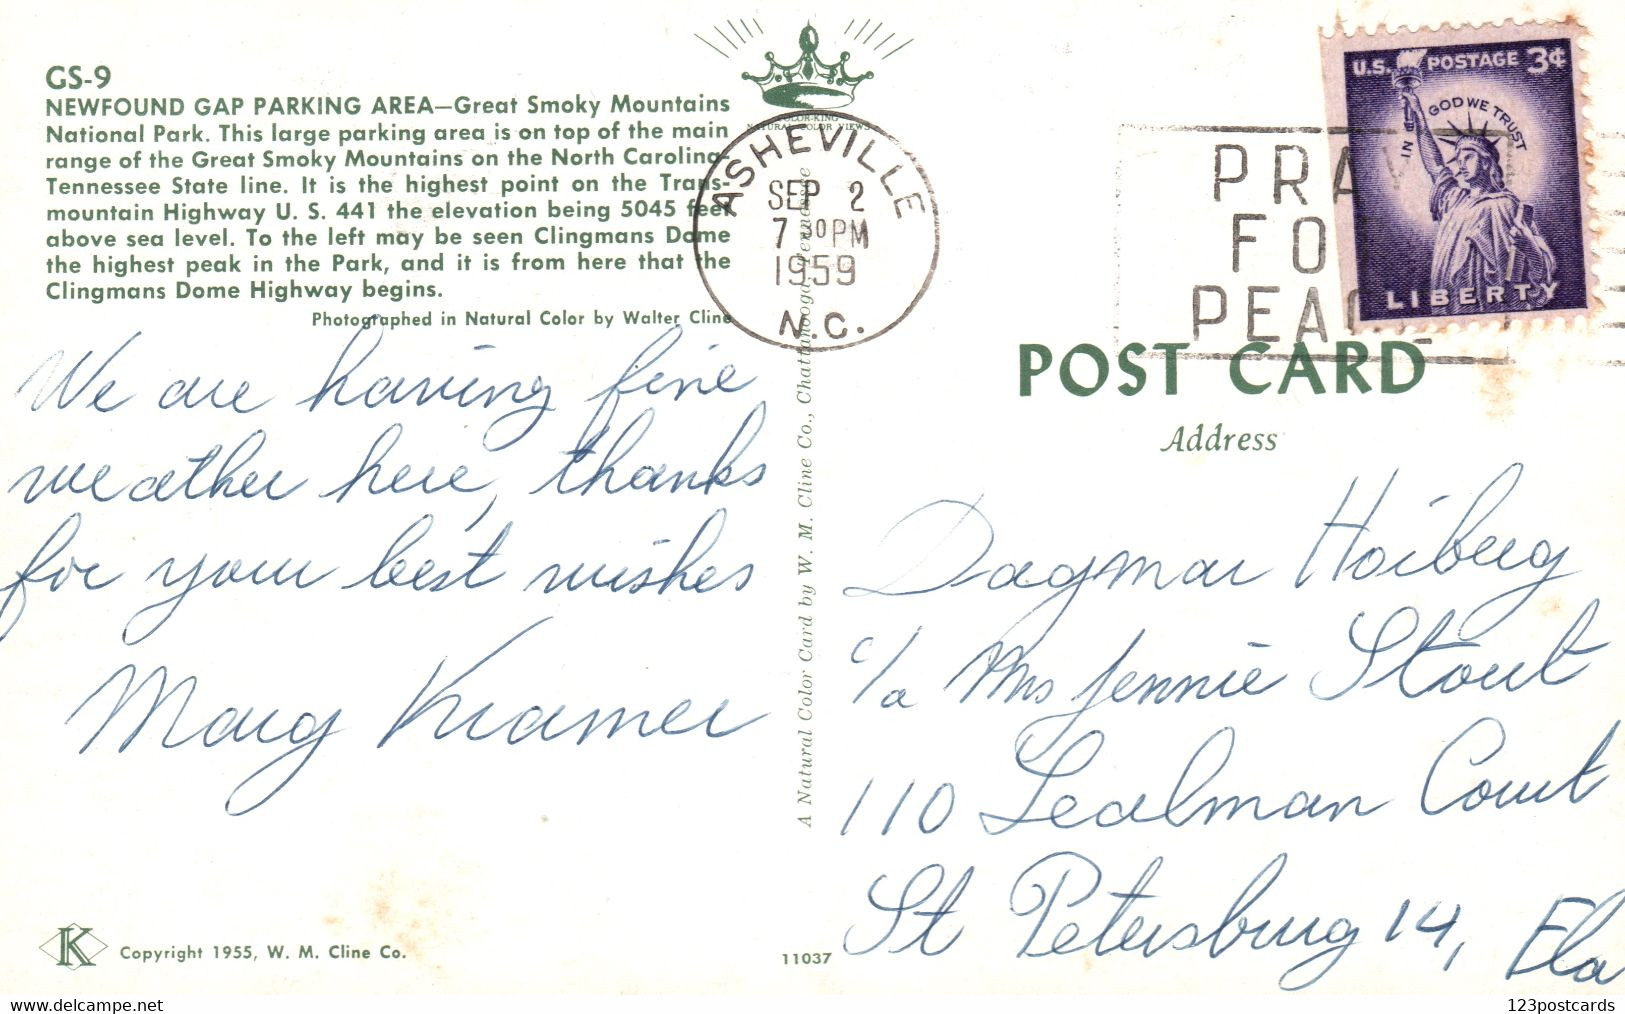 GS-9
NEWFOUND GAP PARKING AREA—Great Smoky Mountains
National Park. This large parking area is on top of the main
range of the Great Smoky Mountains on the North Carolina-
Tennessee State line. It is the highest point on the Trans-
mountain Highway U. S. 441 the elevation being 5045 feet
above sea level. To the left may be seen Clingmans Dome
the highest peak in the Park, and it is from here that the
Clingmans Dome Highway begins.
Photographed in Natural Color by Walter Cline
We are having fine
weather here, thanks
for your best wishes
Mary Kramer
K
Copyright 1955, W. M. Cline Co.
11037
COLOR-KING
NATURAL COLOR VIEWS
A Natural Color Card by W. M. Cline Co., Chattanooga, Tennessee
ASHEVILLE
SEP 2
7 30 PM
1959
N.C.
PRAY
FOR
PEACE
U.S. POSTAGE 3¢
IN GOD WE TRUST
LIBERTY
POST CARD
Address
Dagmar Hoiberg
c/o Mrs Jennie Stout
110 Lealman Court
St Petersburg 14, Fla
Have your say and enjoy it
123postcards